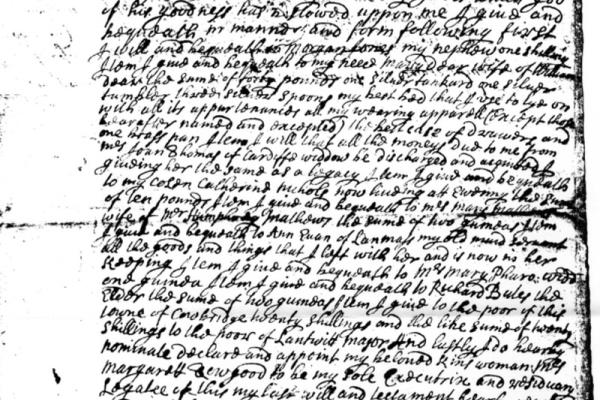 of his goodness has bestowed uppon me I give and
bequeath in manner and form following First
I will and bequeath to Morgan Jones my nephew one shilling
Item I give and bequeath to my neece Mary Dear wife of William
Dear the sume of forty pounds one Silver Tankard one Silver
tumbler three Silver Spoons my best bed that I use to lye on
with all its appurtenances all my wearing apparell (Except those
hereafter named and excepted) the best case of drawers and
one brass pan Item I will that all the moneys due to me from
mrs Joan Thomas of Cardiffe widdow be discharged and acquitted
giveing her the same as a Legacy Item I give and bequeath
to my Cosen Catherine Nichols now liveing att Ewenny the sume
of ten pounds Item I give and bequeath to mrs Mary Mathews
wife of Mr Humphrey Mathews the sume of two Guineas Item
I give and bequeath to Ann Evan of Lanmass my old maid servant
all the goods and things that I left with her and is now in her
keeping Item I give and bequeath to Mrs Mary Pharo: widd
one guinea Item I give and bequeath to Richard Bates the
Elder the sume of two guineas Item I give to the poor of this
towne of Cowbridge twenty shillings and the like sume of twenty
shillings to the poor of Lantwitt major And lastly I do hereby
nominate declare and appoint my beloved kinswoman Mrs
Margarett Newgood to be my sole Executrix and residuary
Legatee of this my last will and testament hereby